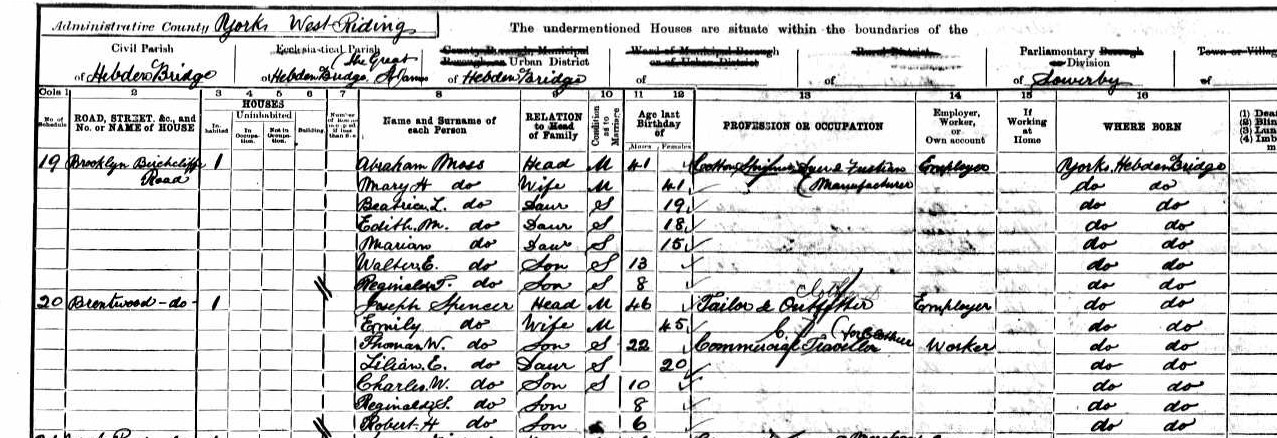 Administrative County Yorks West Riding
The undermentioned Houses are situate within the boundaries of the
Civil Parish
of Hebden Bridge
Ecclesiastical Parish
of Hebden Bridge, St James The Great
County Borough, Municipal
Borough, or Urban District
of Hebden Bridge
Ward of Municipal Borough
or of Urban District
of
Rural District
of
Parliamentary Borough
or Division
of Sowerby
Town or Village
of
Cols 1 2 3 4 5 6 7 8 9 10 11 12 13 14 15 16
No. of Schedule
ROAD, STREET, &c., and No. or NAME of HOUSE
HOUSES
In-habited
Uninhabited
In Occupa-tion
Not in Occupa-tion
Building
Name and Surname of each Person
RELATION to Head of Family
Condition as to Marriage
Age last Birthday of
Males Females
PROFESSION OR OCCUPATION
Employer, Worker, or Own account
If Working at Home
WHERE BORN
19 Brooklyn Birchcliffe Road 1 Abraham Moss Head M 41 Cotton Dyer & Fustian Manufacturer Employer Yorks. Hebden Bridge
Mary H do Wife M 41 do do
Beatrice L. do Daur S 19 do do
Edith. M. do Daur S 18 do do
Marian do Daur S 15 do do
Walter E. do Son S 13 do do
Reginald do Son S 8 do do
20 Brentwood - do - 1 Joseph Spencer Head M 46 Tailor & Outfitter Employer do do
Emily do Wife M 45 do do
Thomas W. do Son S 22 Commercial Traveller Worker do do
Lilian E. do Daur S 20 do do
Charles W. do Son S 10 do do
Reginald S. do Son 8 do do
Robert H do Son 6 do do